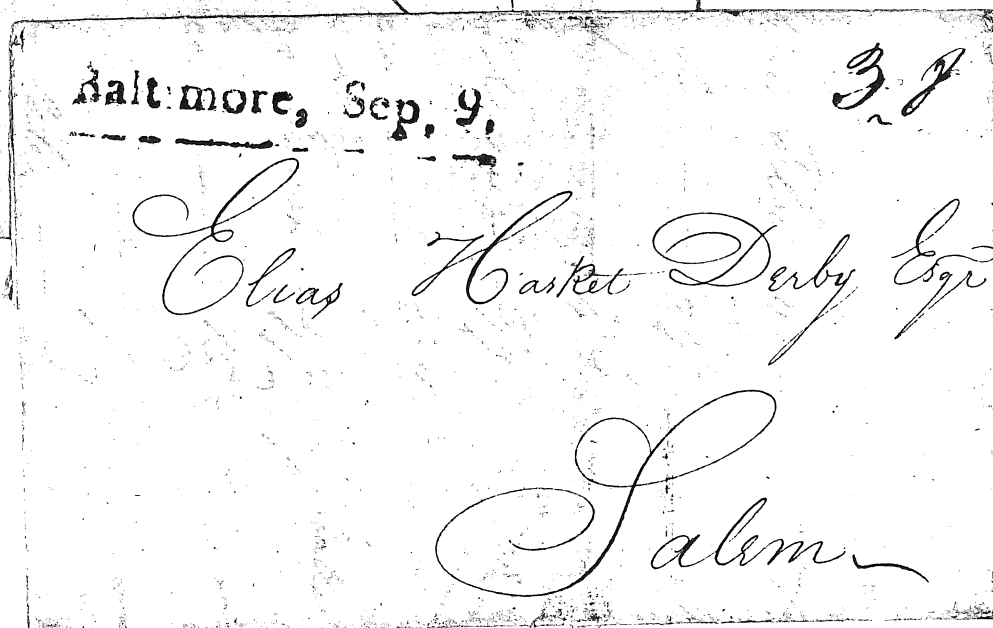 Baltimore, Sep. 9.
Elias Hasket Derby Esqr
Salem